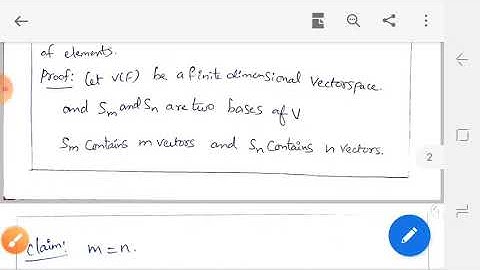 of elements.
Proof: Let V(F) be a finite dimensional Vectorspace.
and Sm and Sn are two bases of V
Sm contains m vectors and Sn contains n vectors.
2
Claim: m = n.